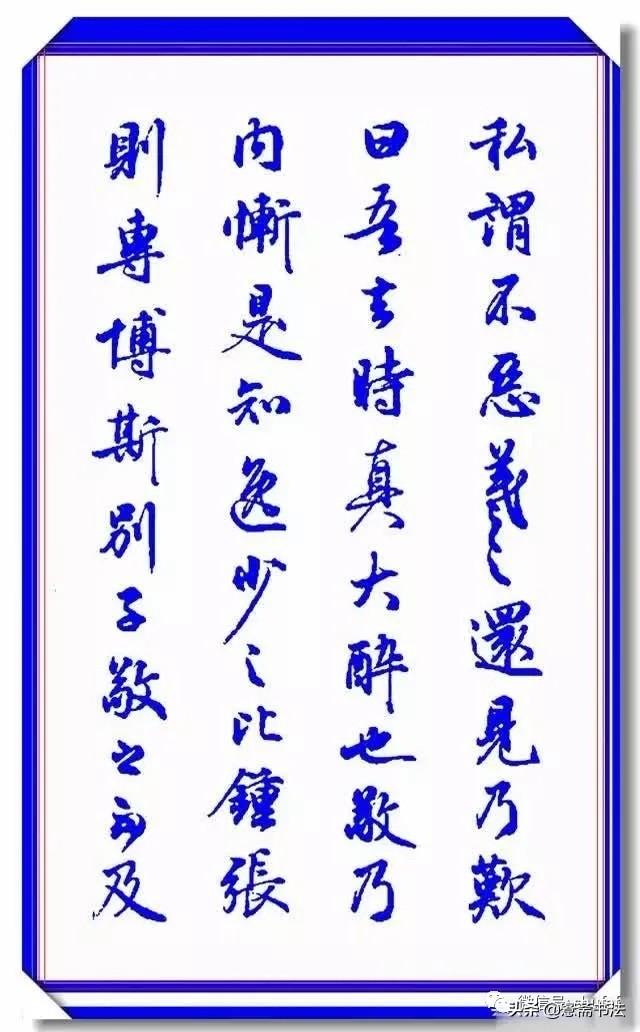 私謂不惡羲之還見乃歎
曰吾去時真大醉也敬乃
內慚是知逸少之比鍾張
則專博斯別子敬之不及
微信号
头条 @斋书法